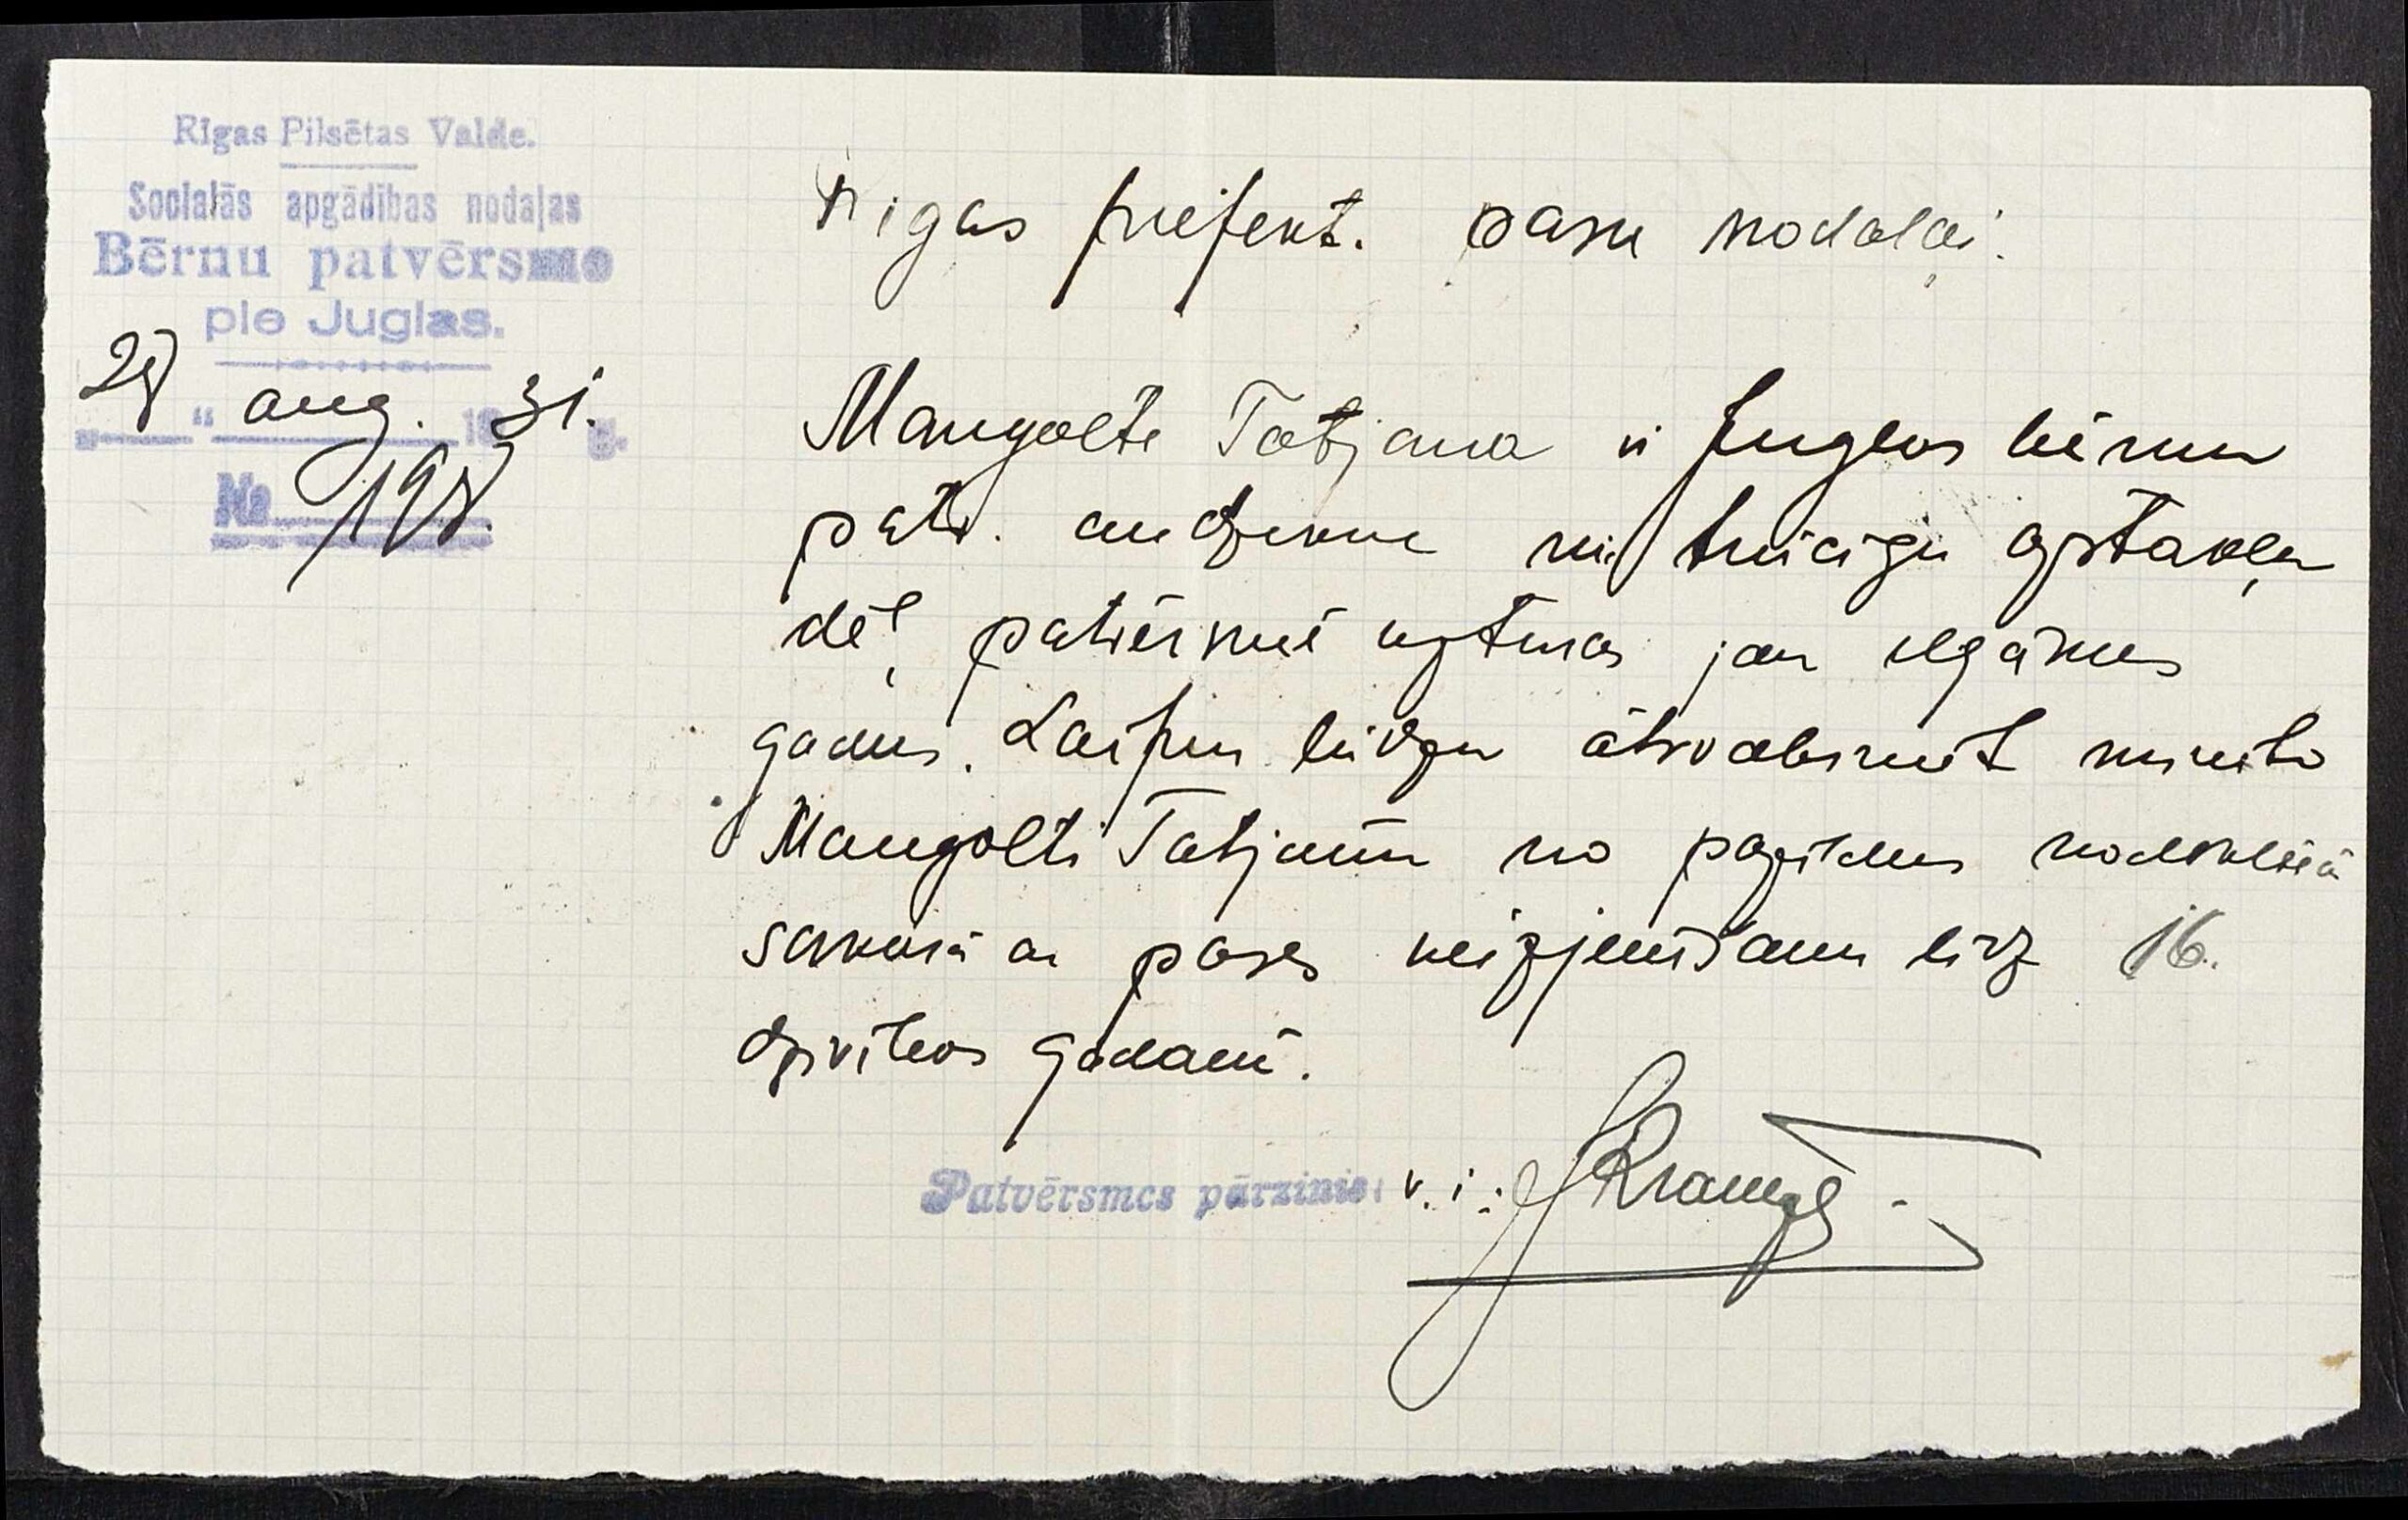 Rīgas Pilsētas Valde.
Sociālās apgādības nodaļas
Bērnu patvērsme
pie Juglas.
28 aug. 31.
No 198.
Rigas prefekt. pasu nodaļai.
Mangolte Tatjana ir Juglas bērnu
patv. audzekne un trūcīgu apstakļu
dēļ patvērsmē uzturas jau ilgākus
gadus. Laipni lūdzu atsvabināt minēto
Mangolti Tatjanu no papildus nodokļiā
sakarā ar pases neizņemšanu līdz 16.
dzivības gadam.
Patvērsmes pārzinis: v. i.: